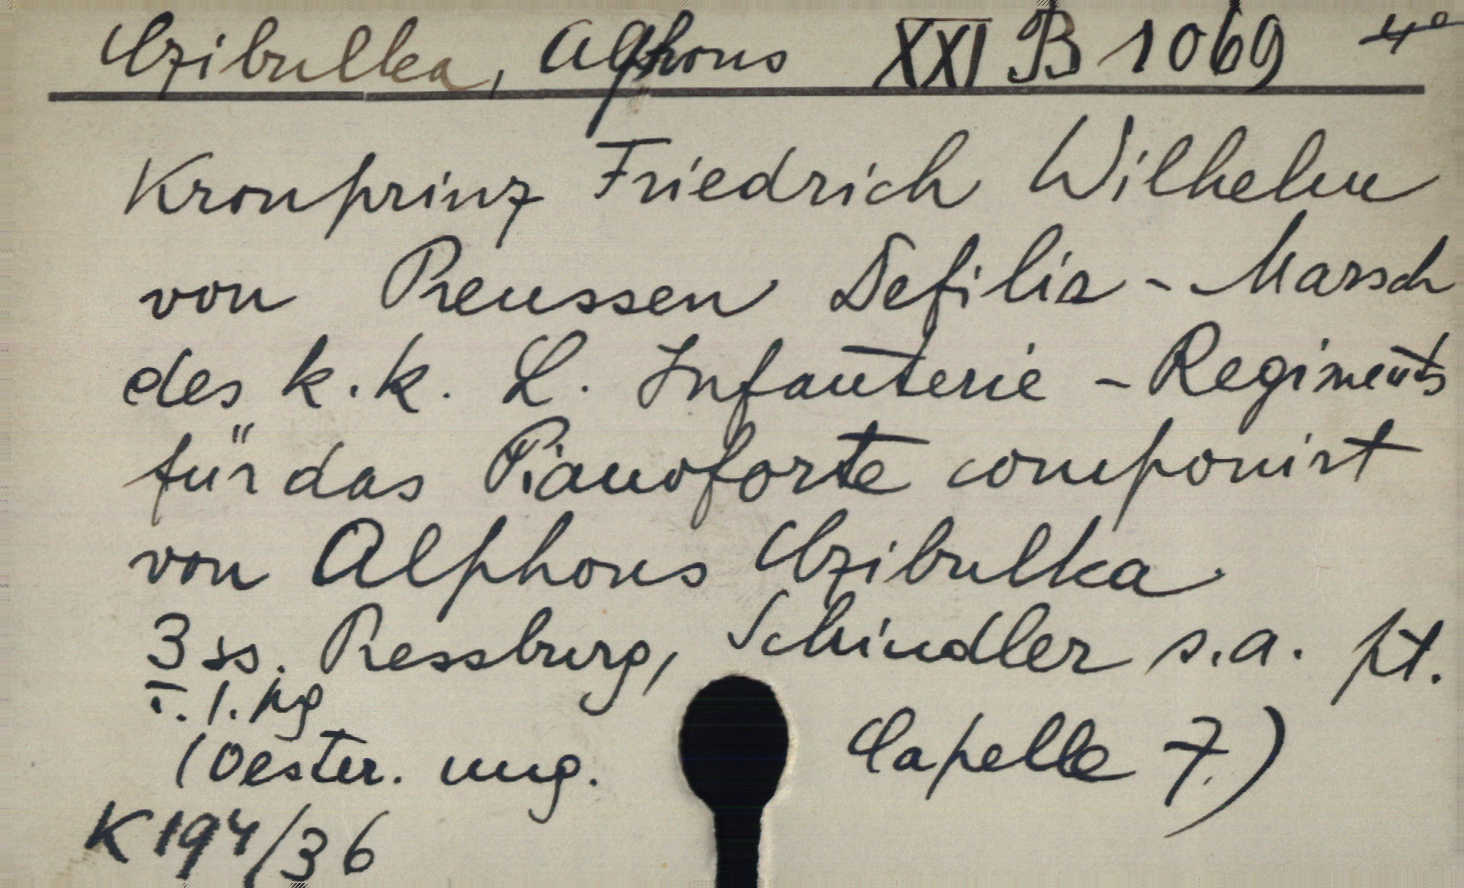 Czibulka, Alphons XXI B 1069 4°
Kronprinz Friedrich Wilhelm
von Preussen Defilir - Marsch
des k.k. L. Infanterie - Regiments
für das Pianoforte componirt
von Alphons Czibulka
3 ss. Pressburg, Schindler s.a. pt.
1. pg
(Oester. ung. Capelle 7.)
K 194/36